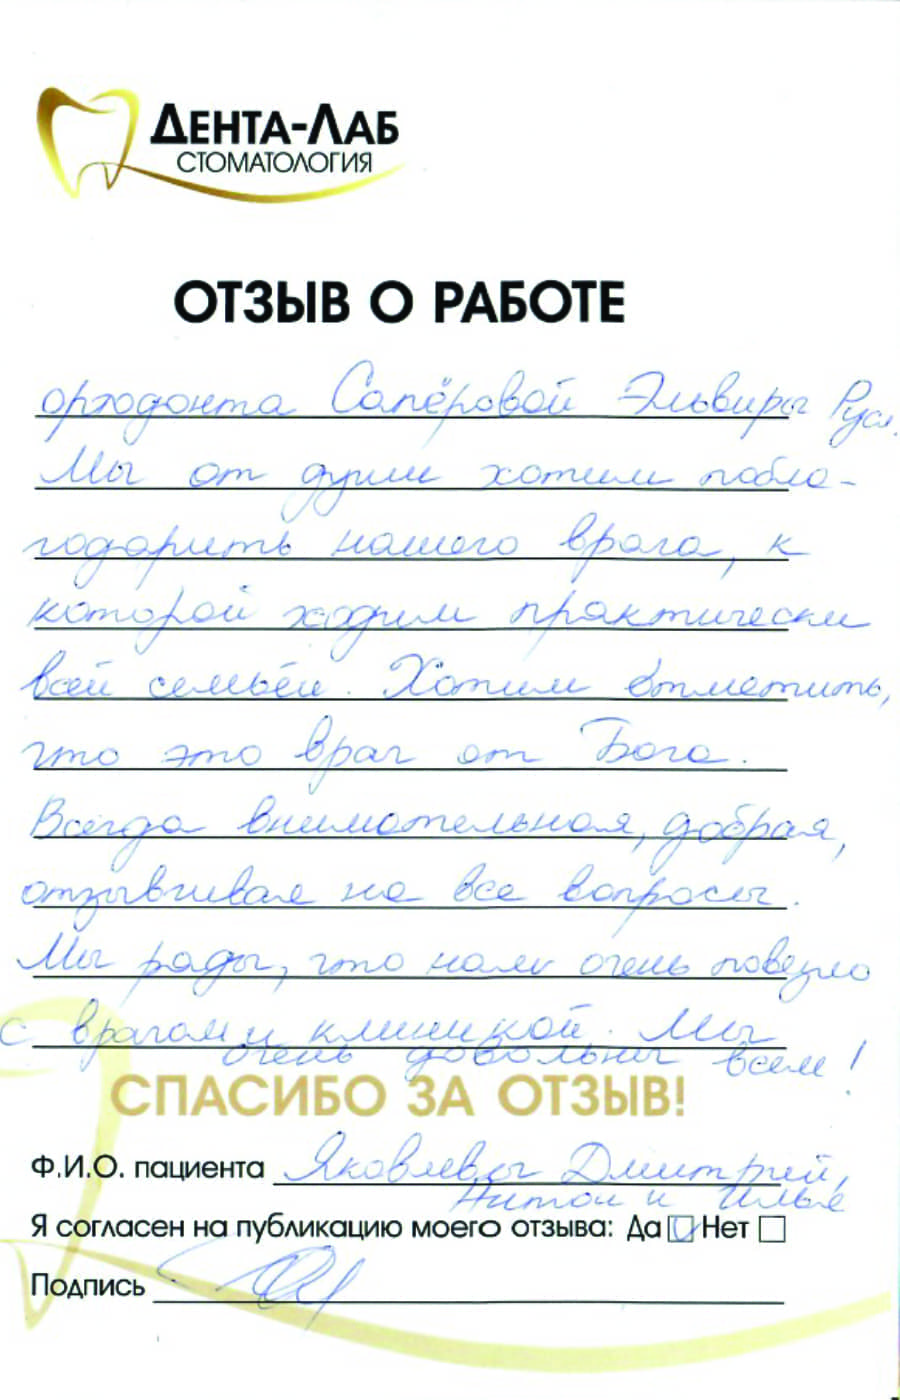 ДЕНТА-ЛАБ
СТОМАТОЛОГИЯ
ОТЗЫВ О РАБОТЕ
ортодонта Сапёровой Эльвиры Русл.
Мы от души хотим побла-
годарить нашего врача, к
которой ходим практически
всей семьёй. Хотим отметить,
что это врач от Бога.
Всегда внимательная, добрая,
отзывчивая на все вопросы.
Мы рады, что нам очень повезло
с врачом и клиникой. Мы
очень довольны всем!
СПАСИБО ЗА ОТЗЫВ!
Ф.И.О. пациента Яковлевы Дмитрий,
Антон и Илья
Я согласен на публикацию моего отзыва: Да Нет
Подпись